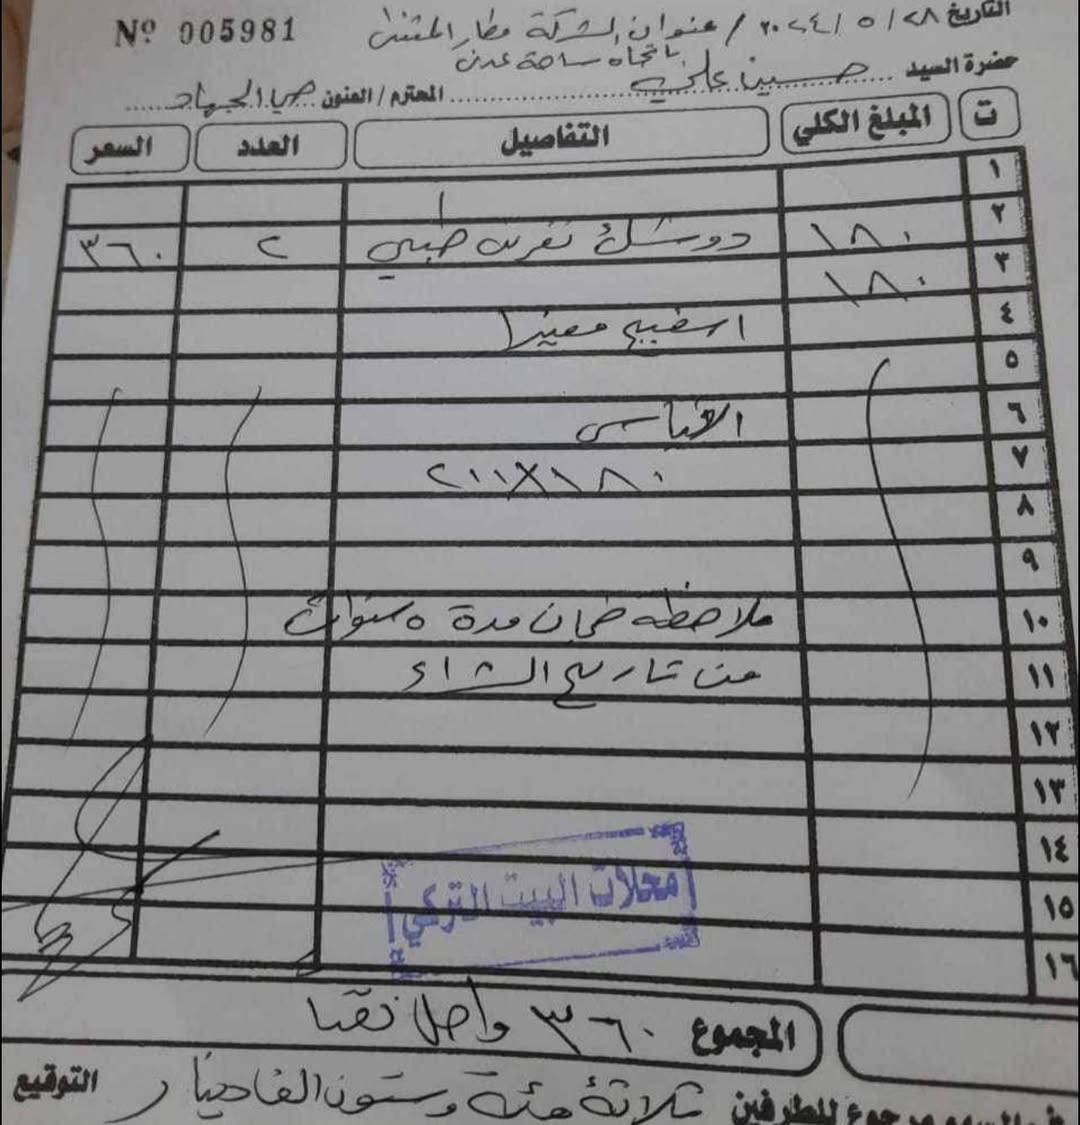 Nº 005981
التاريخ ٢٨ / ٥ / ٢٠٢٤ / عنوان الشركة مطار المثنى
باتجاه ساحة عدن
حضرة السيد حسين علي المحترم / العنون حي الجهاد
ت المبلغ الكلي التفاصيل العدد السعر
١
٢ ١٨٠ دوشك نفرين طبي ٢ ٣٦٠
٣ ١٨٠
٤ اسفنج
٥
٦ القياس
٧ ٢١١×١٨٠
٨
٩
١٠ ملاحظه ضمان مدة ٥ سنوات
١١ من تاريخ الشراء
١٢
١٣
١٤
١٥ محلات البيت التركي
١٦
المجموع ٣٦٠ واصل نقدا
مرجوع للطرفين ثلاثة مئة وستون الف دينار التوقيع